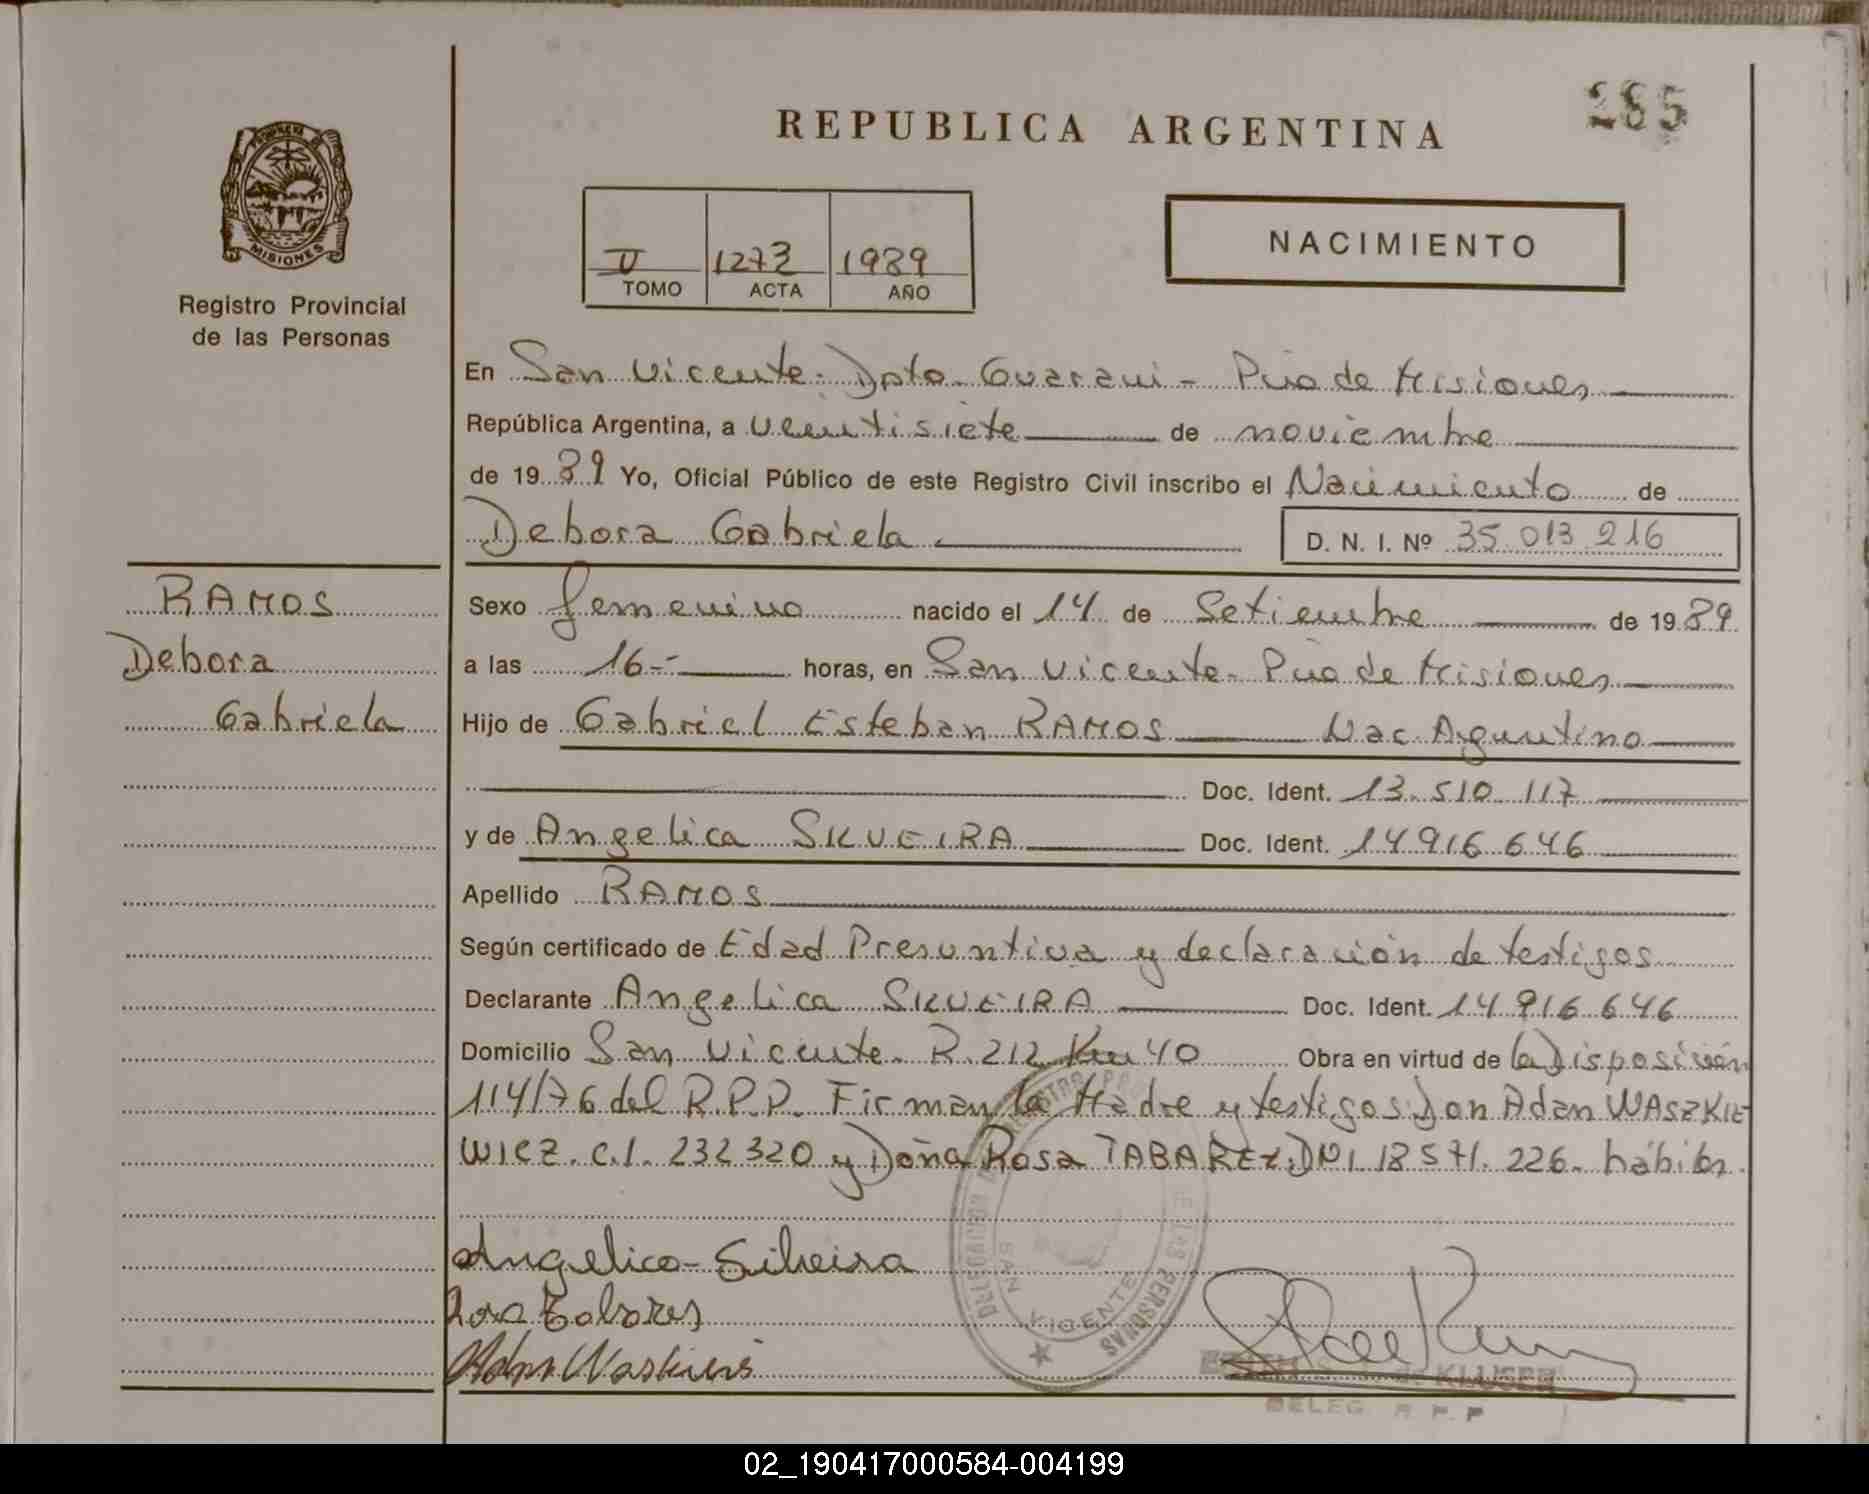 285
REPUBLICA ARGENTINA
PROVINCIA DE
MISIONES
Registro Provincial
de las Personas
NACIMIENTO
V 1273 1989
TOMO ACTA AÑO
En San Vicente. Dpto. Guarani - Pcia de Misiones
República Argentina, a veintisiete de noviembre
de 1989 Yo, Oficial Público de este Registro Civil inscribo el Nacimiento de
Debora Gabriela D. N. I. Nº 35.013.216
RAMOS
Debora
Gabriela
Sexo femenino nacido el 14 de Setiembre de 1989
a las 16.- horas, en San Vicente. Pcia de Misiones
Hijo de Gabriel Esteban RAMOS Nac Argentino
Doc. Ident. 13.510.117
y de Angelica SILVEIRA Doc. Ident. 14.916.646
Apellido RAMOS
Según certificado de Edad Presuntiva y declaración de testigos
Declarante Angelica SILVEIRA Doc. Ident. 14.916.646
Domicilio San Vicente. R. 212 Km 40 Obra en virtud de la Disposición
114/76 del R.P.P. Firman la Madre y testigos Don Adan WASZKIE
WICZ. C.I. 232320 y Doña Rosa TABAREZ DNI 18571.226. hábiles.
Angelica Silveira
Rosa Tabarez
DELEGACION
SAN VICENTE
PERSONAS
de KLUSER
DELEG. R. P. P
02_190417000584-004199